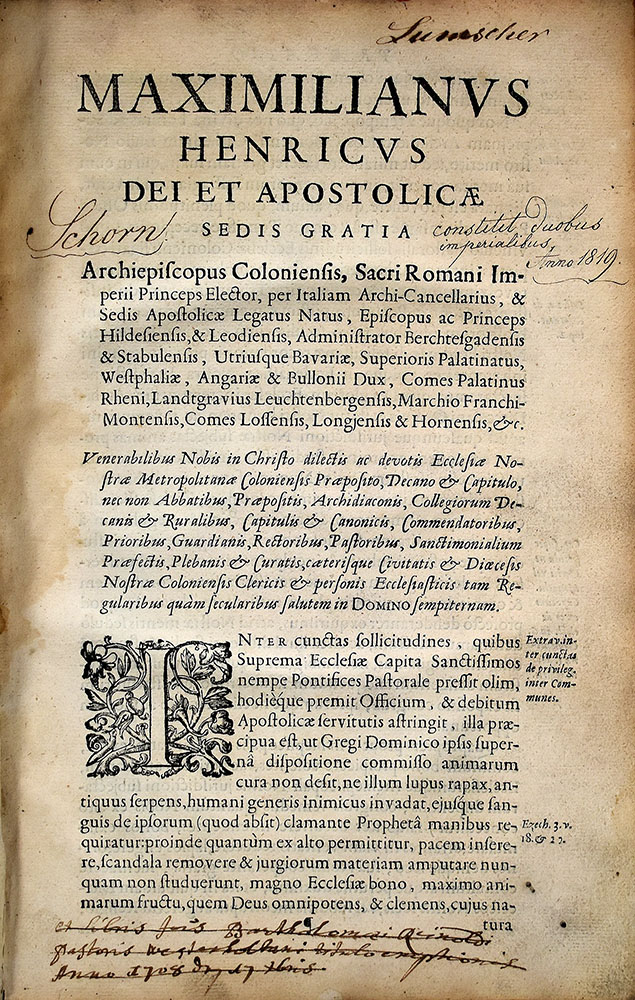 Lumscher
MAXIMILIANVS
HENRICVS
DEI ET APOSTOLICÆ
SEDIS GRATIA
Schorn
constitit duobus
imperialibus,
Anno 1819.
Archiepiſcopus Colonienſis, Sacri Romani Im-
perii Princeps Elector, per Italiam Archi-Cancellarius, &
Sedis Apoſtolicæ Legatus Natus, Epiſcopus ac Princeps
Hildeſienſis, & Leodienſis, Adminiſtrator Berchteſgadenſis
& Stabulenſis, Utriuſque Bavariæ, Superioris Palatinatus,
Weſtphaliæ, Angariæ & Bullonii Dux, Comes Palatinus
Rheni, Landtgravius Leuchtenbergenſis, Marchio Franchi-
Montenſis, Comes Loſſenſis, Longjenſis & Hornenſis, &c.
Venerabilibus Nobis in Chriſto dilectis ac devotis Eccleſiæ No-
ſtræ Metropolitanæ Colonienſis Præpoſito, Decano & Capitulo,
nec non Abbatibus, Præpoſitis, Archidiaconis, Collegiorum De-
canis & Ruralibus, Capitulis & Canonicis, Commendatoribus,
Prioribus, Guardianis, Rectoribus, Paſtoribus, Sanctimonialium
Præfectis, Plebanis & Curatis, cæteriſque Civitatis & Diœceſis
Noſtræ Colonienſis Clericis & perſonis Eccleſiaſticis tam Re-
gularibus quàm ſecularibus ſalutem in DOMINO ſempiternam.
INTER cunctas ſollicitudines, quibus
Suprema Eccleſiæ Capita Sanctiſſimos
nempe Pontifices Paſtorale preſſit olim,
hodiéque premit Officium, & debitum
Apoſtolicæ ſervitutis aſtringit, illa præ-
cipua eſt, ut Gregi Dominico ipſis ſuper-
nâ diſpoſitione commiſſo animarum
cura non deſit, ne illum lupus rapax, an-
tiquus ſerpens, humani generis inimicus invadat, ejuſque ſan-
guis de ipſorum (quod abſit) clamante Prophetâ manibus re-
quiratur: proinde quantùm ex alto permittitur, pacem inſere-
re, ſcandala removere & jurgiorum materiam amputare nun-
quam non ſtuduerunt, magno Eccleſiæ bono, maximo ani-
marum fructu, quem Deus omnipotens, & clemens, cujus na-
tura
Extrav. in-
ter cunctas
de privileg.
inter Com-
munes.
Ezech. 3. v.
18. & 27.
ex libris
Pastoris
Anno 1708